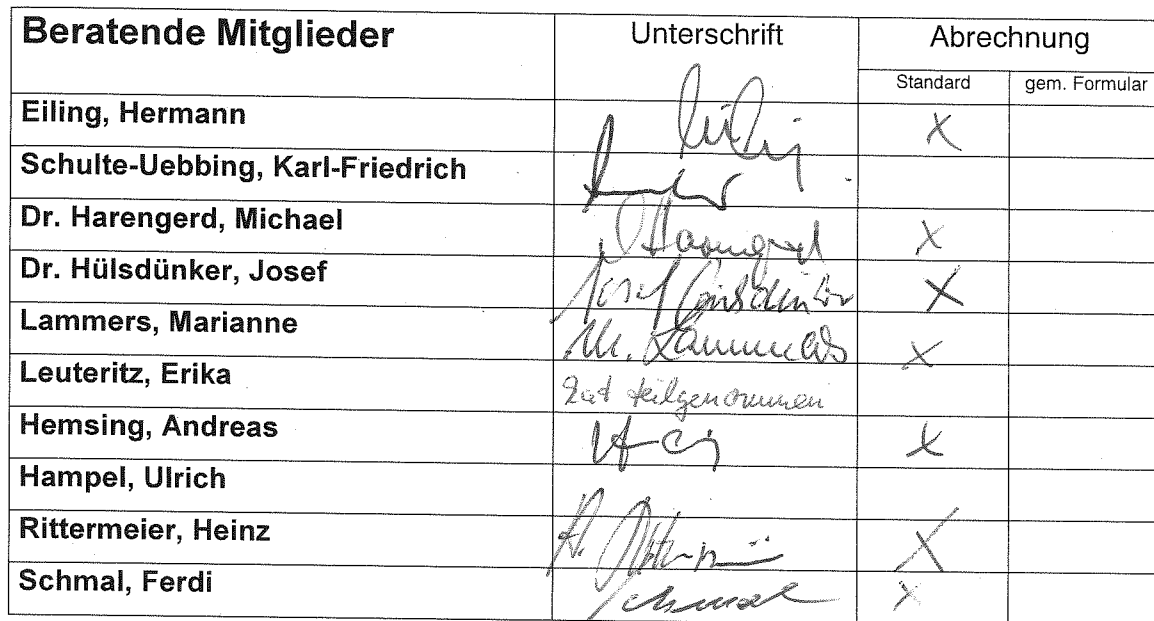 Beratende Mitglieder Unterschrift Abrechnung
Standard gem. Formular
Eiling, Hermann X
Schulte-Uebbing, Karl-Friedrich
Dr. Harengerd, Michael X
Dr. Hülsdünker, Josef Josef X
Lammers, Marianne M. Lammers X
Leuteritz, Erika hat teilgenommen
Hemsing, Andreas X
Hampel, Ulrich
Rittermeier, Heinz X
Schmal, Ferdi Schmal X